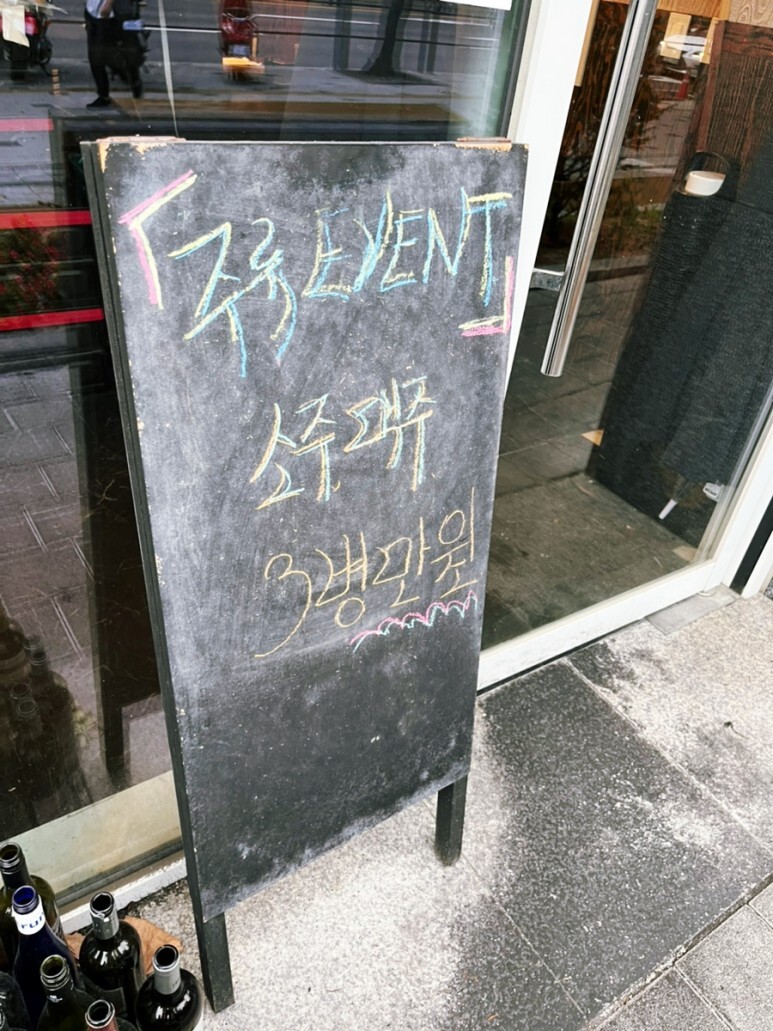 「주류 EVENT」
소주 맥주
3병 만원